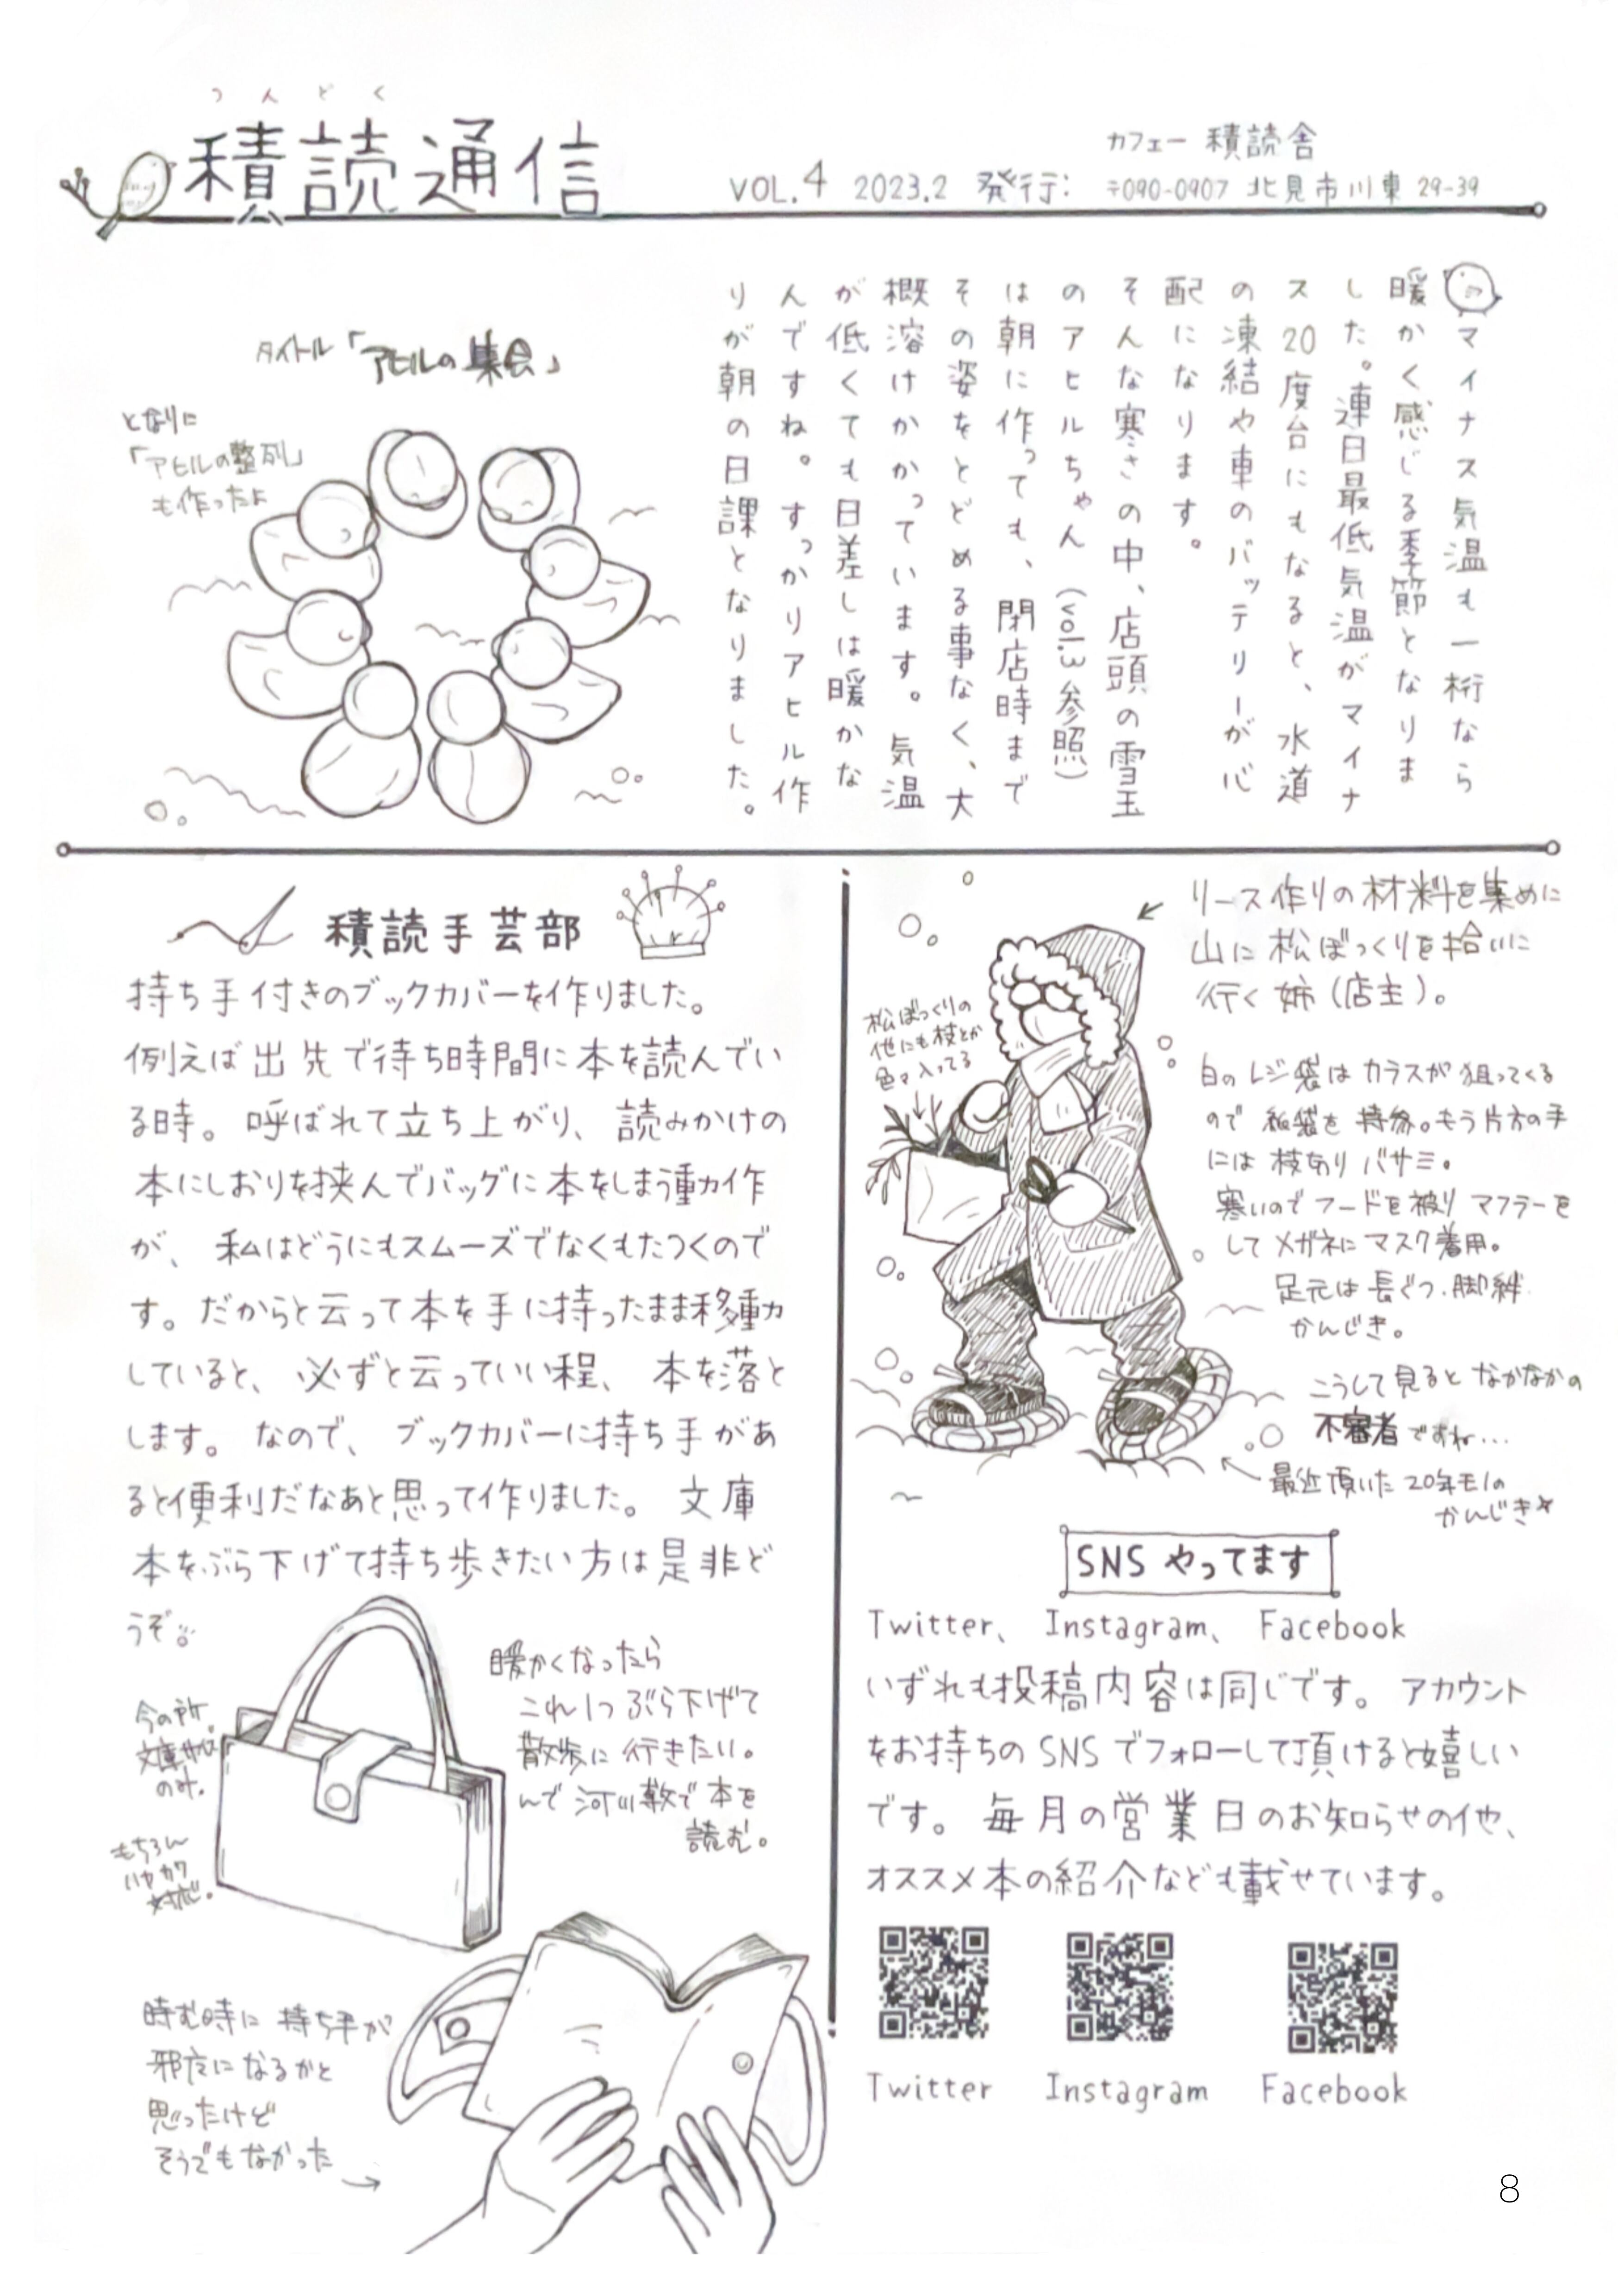 つんどく
積読通信
VOL.4 2023.2 発行:
カフェー 積読舎
〒090-0907 北見市川東 29-39
マイナス気温も一桁なら
暖かく感じる季節となりま
した。連日最低気温がマイナ
ス20度台にもなると、水道
の凍結や車のバッテリーが心
配になります。
そんな寒さの中、店頭の雪玉
のアヒルちゃん(vol.3参照)
は朝に作っても、閉店時まで
その姿をとどめる事なく、大
概溶けかかっています。気温
が低くても日差しは暖かな
んですね。すっかりアヒル作
りが朝の日課となりました。
タイトル「アヒルの集会」
となりに
「アヒルの整列」
も作ったよ
積読手芸部
持ち手付きのブックカバーを作りました。
例えば出先で待ち時間に本を読んでい
る時。呼ばれて立ち上がり、読みかけの
本にしおりを挟んでバッグに本をしまう動作
が、私はどうにもスムーズでなくもたつくので
す。だからと云って本を手に持ったまま移動
していると、必ずと云っていい程、本を落と
します。なので、ブックカバーに持ち手があ
ると便利だなあと思って作りました。文庫
本をぶら下げて持ち歩きたい方は是非ど
うぞ。
暖かくなったら
これ1つぶら下げて
散歩に行きたい。
んで河川敷で本を
読む。
今の所
文庫サイズ
のみ。
もちろん
ハヤカワ
対応。
時む時に持ち手が
邪魔になるかと
思ったけど
そうでもなかった
リース作りの材料を集めに
山に松ぼっくりを拾いに
行く姉(店主)。
松ぼっくりの
他にも枝とか
色々入ってる
白のレジ袋はカラスが狙ってくる
ので紙袋を持参。もう片方の手
には枝切りバサミ。
寒いのでフードを被りマフラーを
してメガネにマスク着用。
足元は長ぐつ、脚絆、
かんじき。
こうして見るとなかなかの
不審者ですね...
最近頂いた20年モノの
かんじき☆
SNS やってます
Twitter、Instagram、Facebook
いずれも投稿内容は同じです。アカウント
をお持ちのSNSでフォローして頂けると嬉しい
です。毎月の営業日のお知らせの他、
オススメ本の紹介なども載せています。
Twitter Instagram Facebook
8